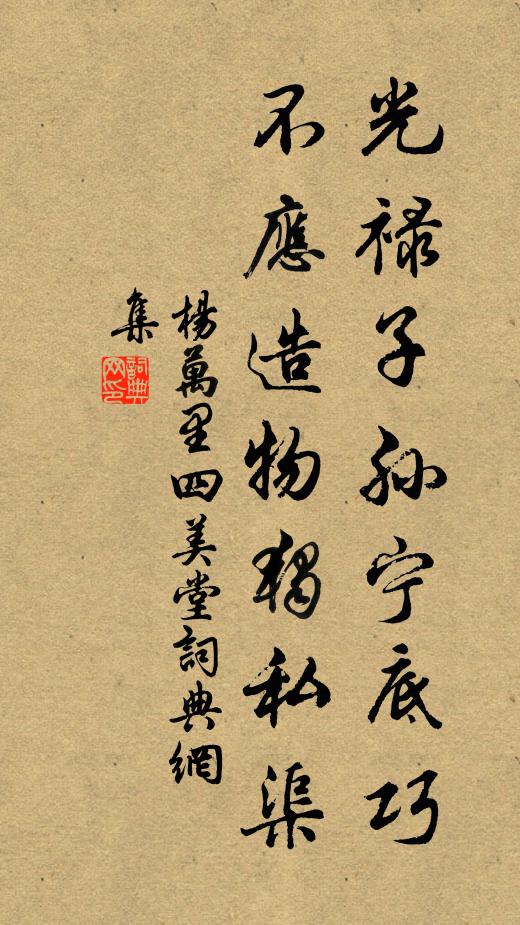 光禄子孙宁底巧
不應造物獨私渠
楊萬里四美堂詞典網
集
詞典
网印